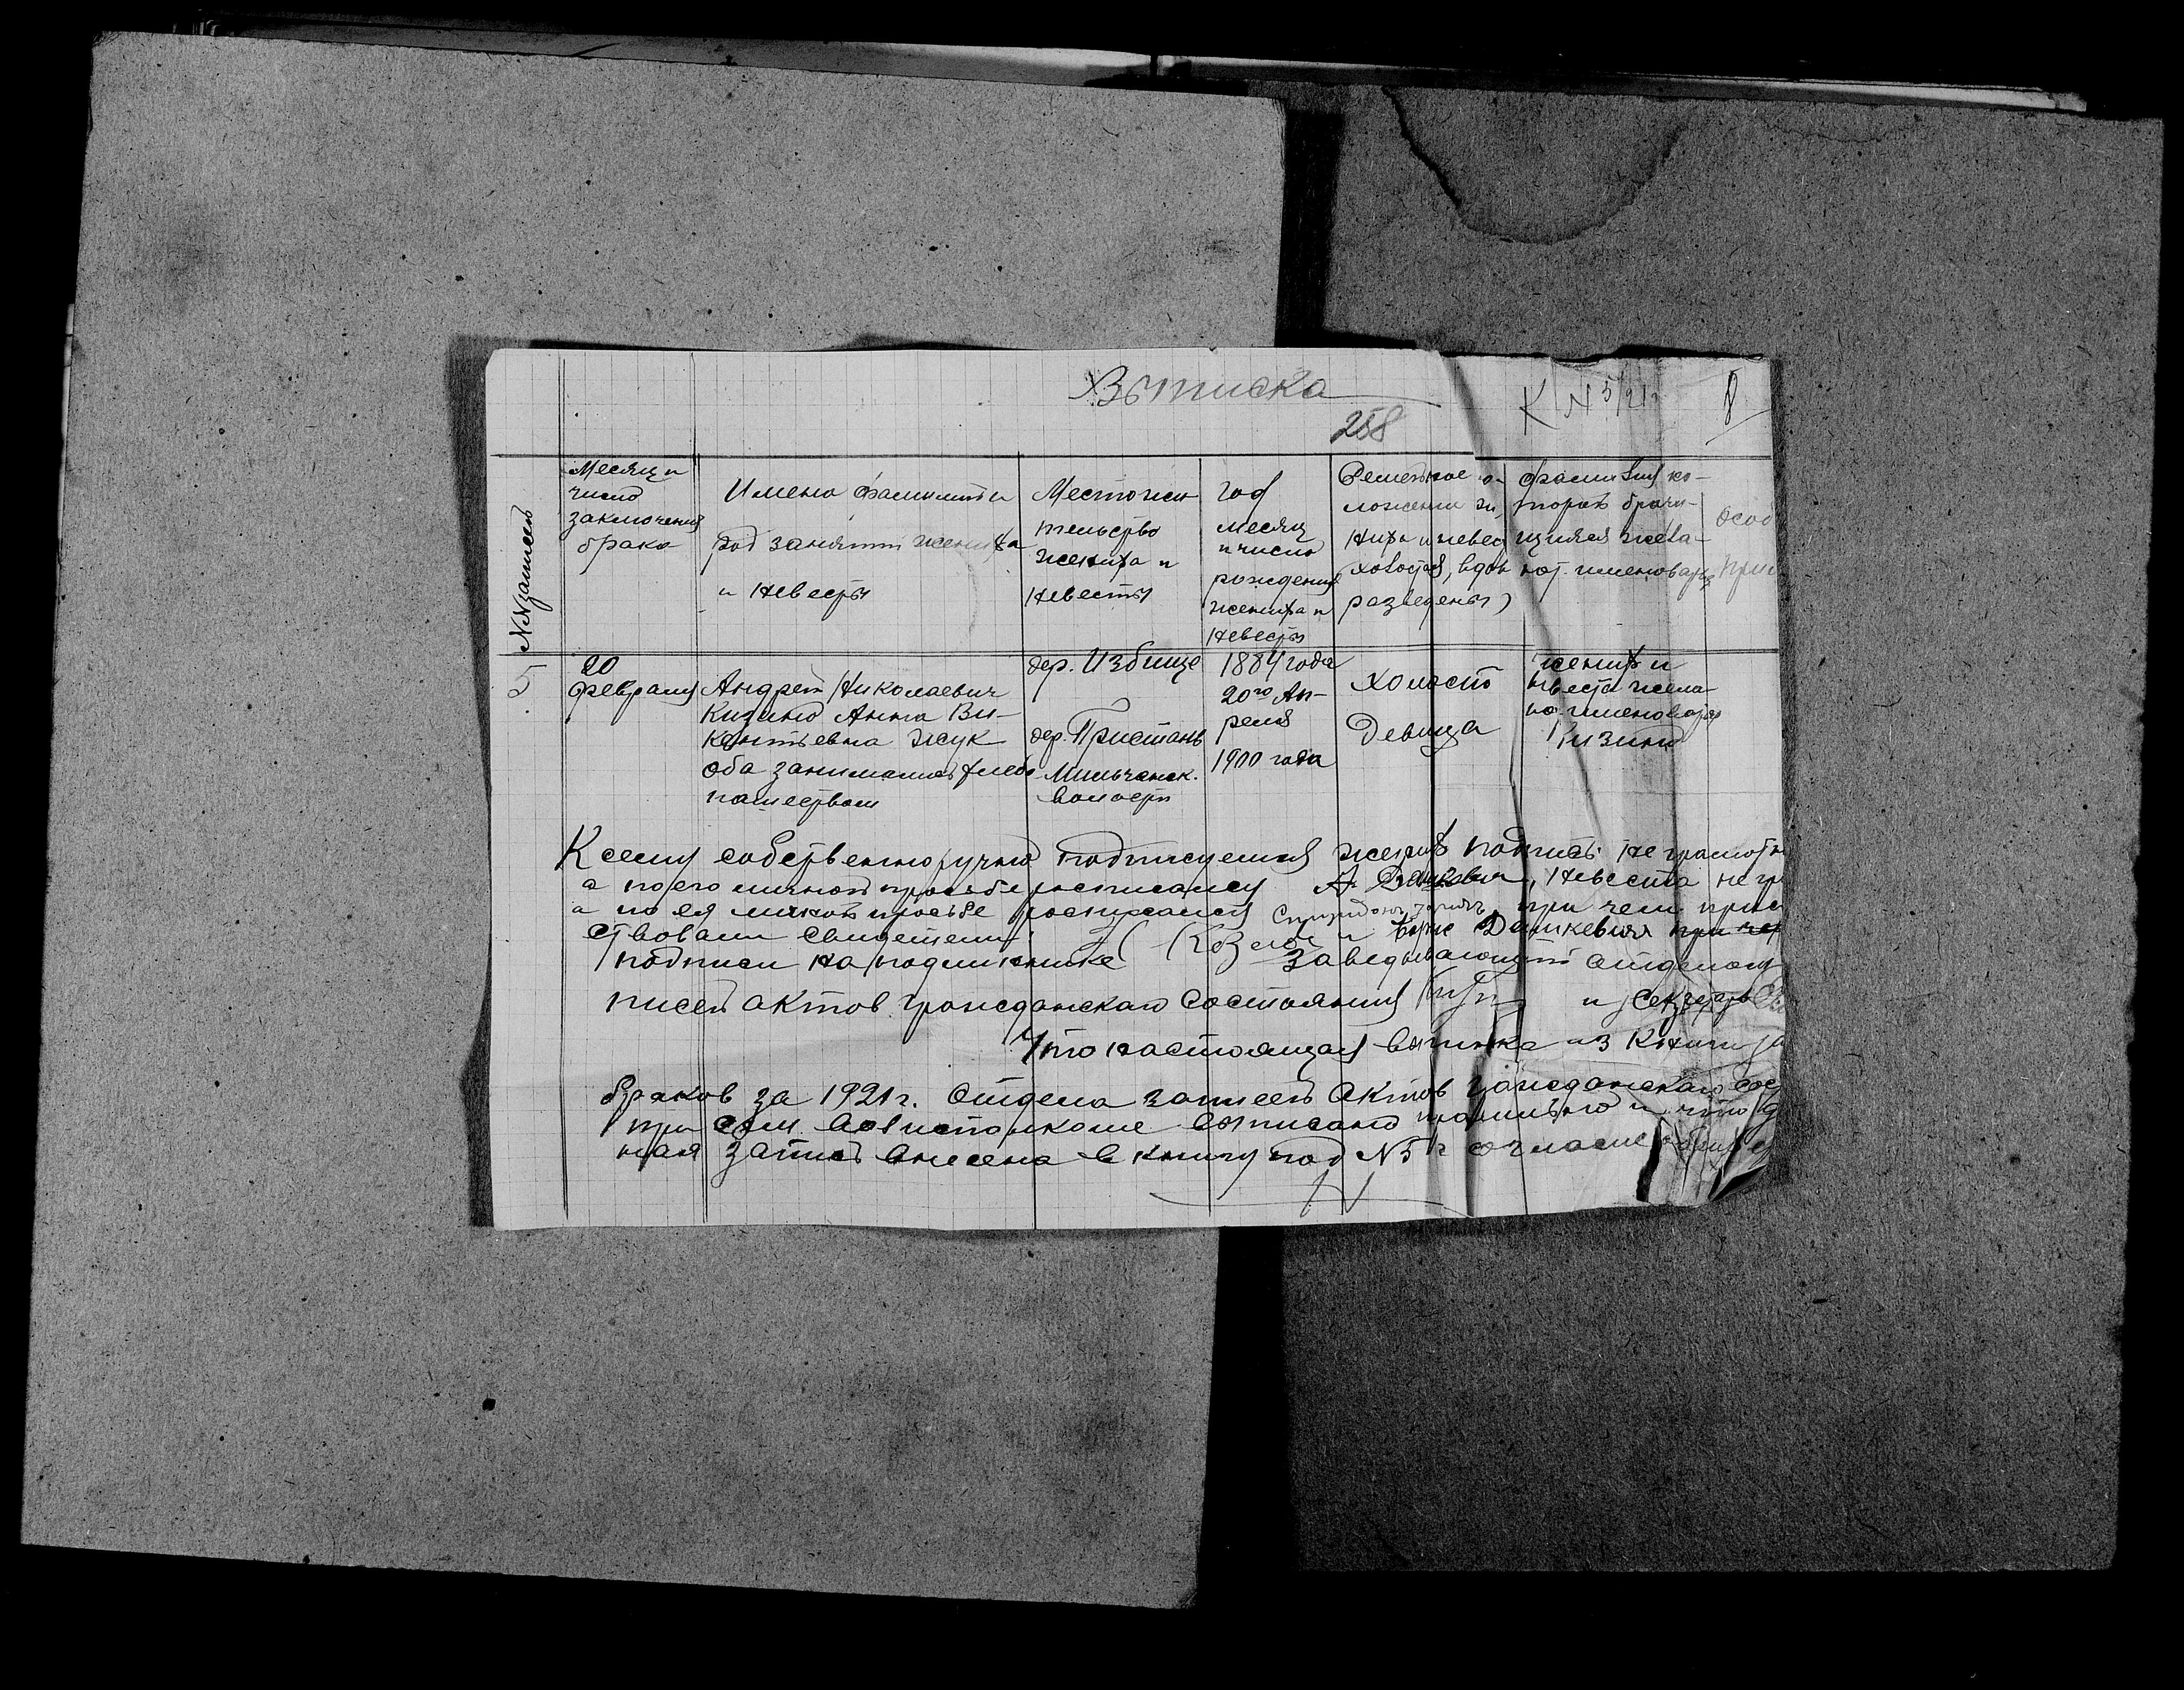 Выписка
К N 5/21г 8
258
NN записей
Месяц и
число
заключения
брака
Имена фамилии и
род занятий жениха
и невесты
Местожи
тельство
жениха и
невесты
год
месяц
и число
рождения
жениха и
невесты
ложение же
ниха и невес
холостой, вдов
разведены)
фамилия ко-
торой брачу-
щиеся жела-
ют именоваться
Особ
прим
5
20
февраля
Андрей Николаевич
Кизино Анна Ви-
кентьевна Жук
оба занимались хлебо
пашеством
дер. Избище
дер. Пристань
Мильчанск.
волости
1884 года
20го Ап-
реля
1900 года
холост
Девица
жених и
невеста жела-
ют именоваться
Кизино
К сему собственноручно подписуемся жених подпись неграмотн
а по его личной прозьбе росписался А. невеста негр
а по ея личной прозьбе росписался Спиридон при чем прис
ствовали свидетели Козлов и Борис Дашкевич при чем
подписи на подлиннике Заведывающий отделом
писей актов гражданскаго состояния и Секретарь
Что настоящая выписка из Книги
браков за 1921 г. Отдела записей Актов гражданскаго сос
при выписано правильно и что
ная запись внесена в книгу под N 5 согласно